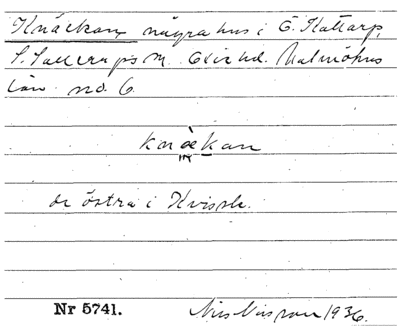 Knäckan några hus i Ö. Kattarp,
S. Sallerups sn. Oxie hd. Malmöhus
län no. 6.
knäkan
de östra i Kvissle.
Nr 5741. Nils Nilsson 1936.